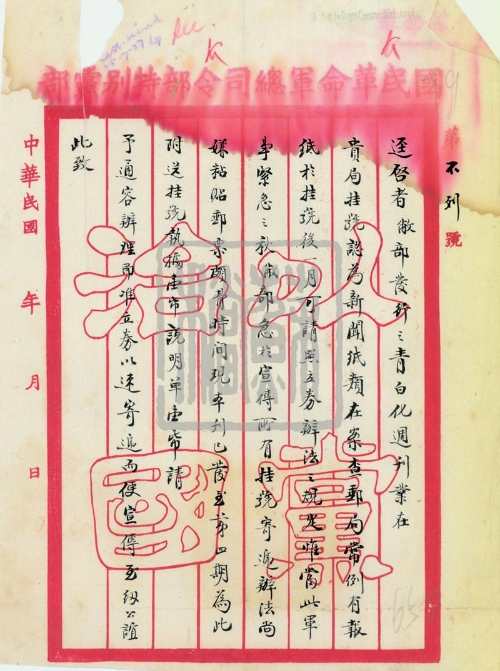 國民革命軍總司令部特別黨部
第不列號
逕啓者敝部發行之青白化週刊業在
貴局挂號認為新聞紙類在案查郵局常例有報
紙於挂號後一月可請照立券辦法之規定惟當此軍
事緊急之秋敝部急於宣傳所有挂號寄遞辦法尚
嫌黏貼郵票頗費時間現本刊已發至第四期為此
附送挂號執據壹帋說明單壹帋請
予通容辦理即准立券以速寄遞而便宣傳至紉公誼
此致
中華民國 年 月 日
以黨治國